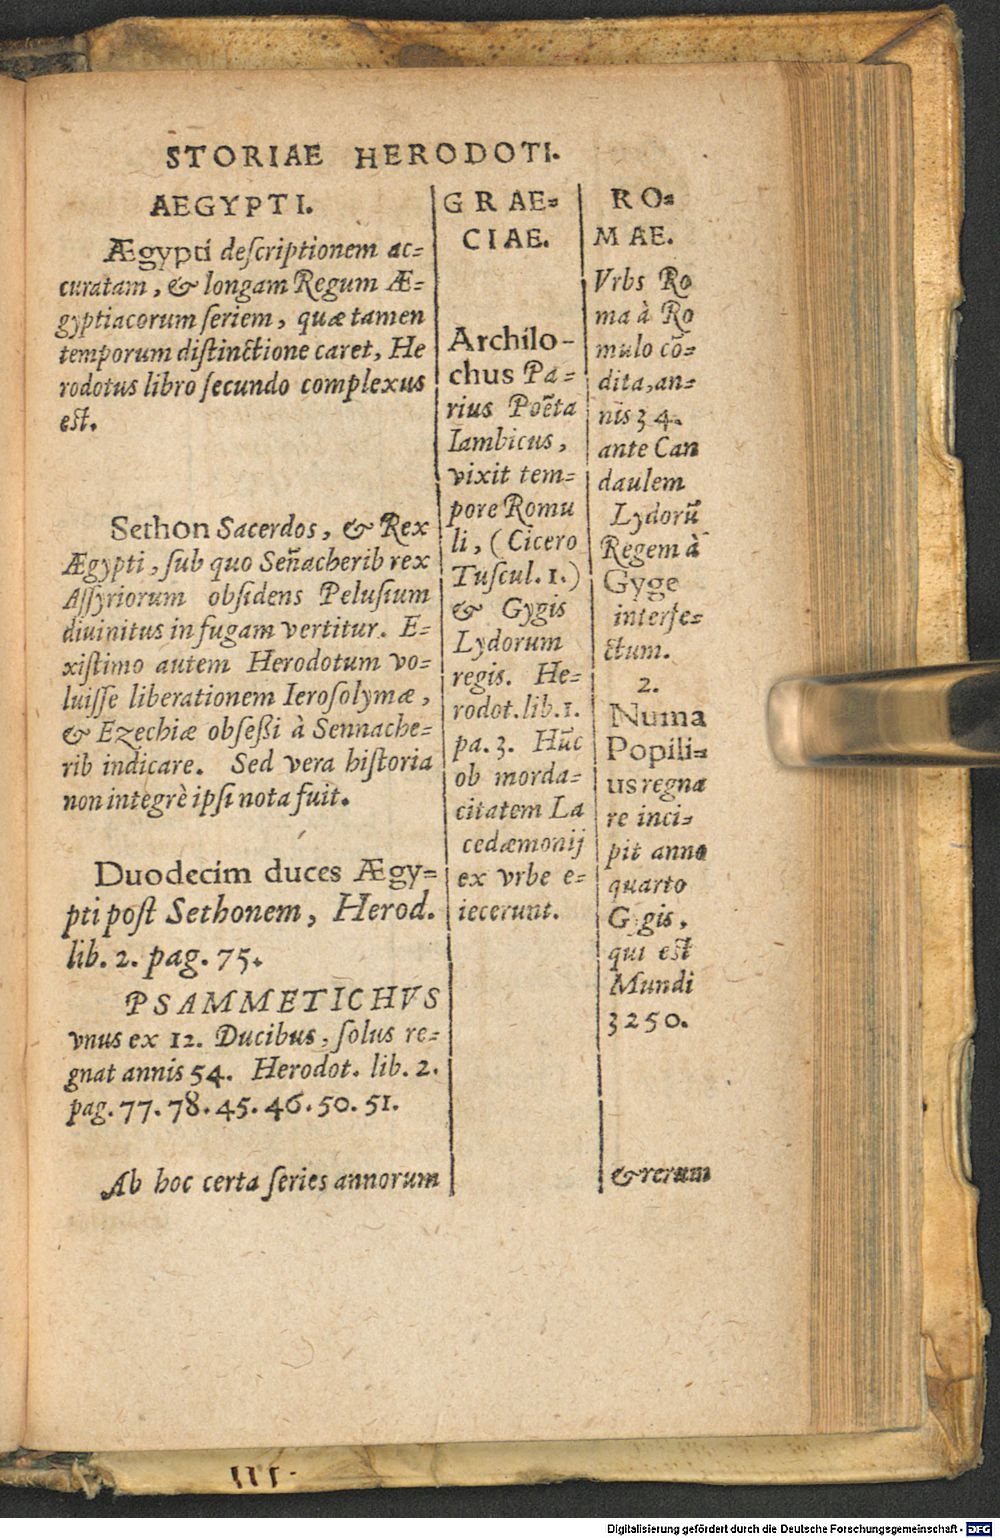 STORIAE HERODOTI.
AEGYPTI.
Ægypti deſcriptionem ac=
curatam, & longam Regum Æ=
gyptiacorum ſeriem, quæ tamen
temporum diſtinctione caret, He
rodotus libro ſecundo complexus
eſt.
Sethon Sacerdos, & Rex
Ægypti, ſub quo Señacherib rex
Aſſyriorum obſidens Peluſium
diuinitus in fugam vertitur. E=
xiſtimo autem Herodotum vo=
luiſſe liberationem Ieroſolymæ,
& Ezechiæ obſeßi à Sennache=
rib indicare. Sed vera hiſtoria
non integrè ipſi nota fuit.
Duodecim duces Ægy=
pti poſt Sethonem, Herod.
lib. 2. pag. 75.
PSAMMETICHVS
vnus ex 12. Ducibus, ſolus re=
gnat annis 54. Herodot. lib. 2.
pag. 77. 78. 45. 46. 50. 51.
Ab hoc certa ſeries annorum
GRAE=
CIAE.
Archilo-
chus Pa=
rius Poëta
Iambicus,
vixit tem=
pore Romu
li, (Cicero
Tuſcul. 1.)
& Gygis
Lydorum
regis. He=
rodot. lib. 1.
pa. 3. Hūc
ob morda=
citatem La
cedæmonij
ex vrbe e=
iecerunt.
RO=
MAE.
Vrbs Ro
ma à Ro
mulo cō=
dita, an=
nis 34.
ante Can
daulem
Lydorū
Regem à
Gyge
interfe=
ctum.
2.
Numa
Popili=
us regna
re inci=
pit anno
quarto
Gygis,
qui eſt
Mundi
3250.
& rerum
Digitalisierung gefördert durch die Deutsche Forschungsgemeinschaft - DFG